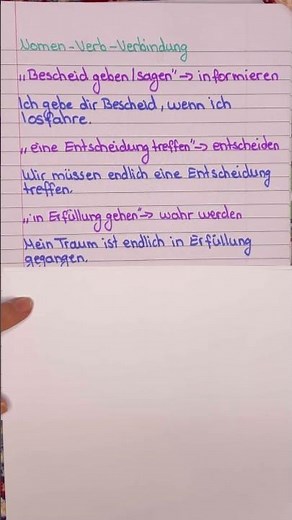 Nomen-Verb-Verbindung
„Bescheid geben/sagen" → informieren
Ich gebe dir Bescheid, wenn ich
losfahre.
„eine Entscheidung treffen" → entscheiden
Wir müssen endlich eine Entscheidung
treffen.
„in Erfüllung gehen" → wahr werden
Mein Traum ist endlich in Erfüllung
gegangen.